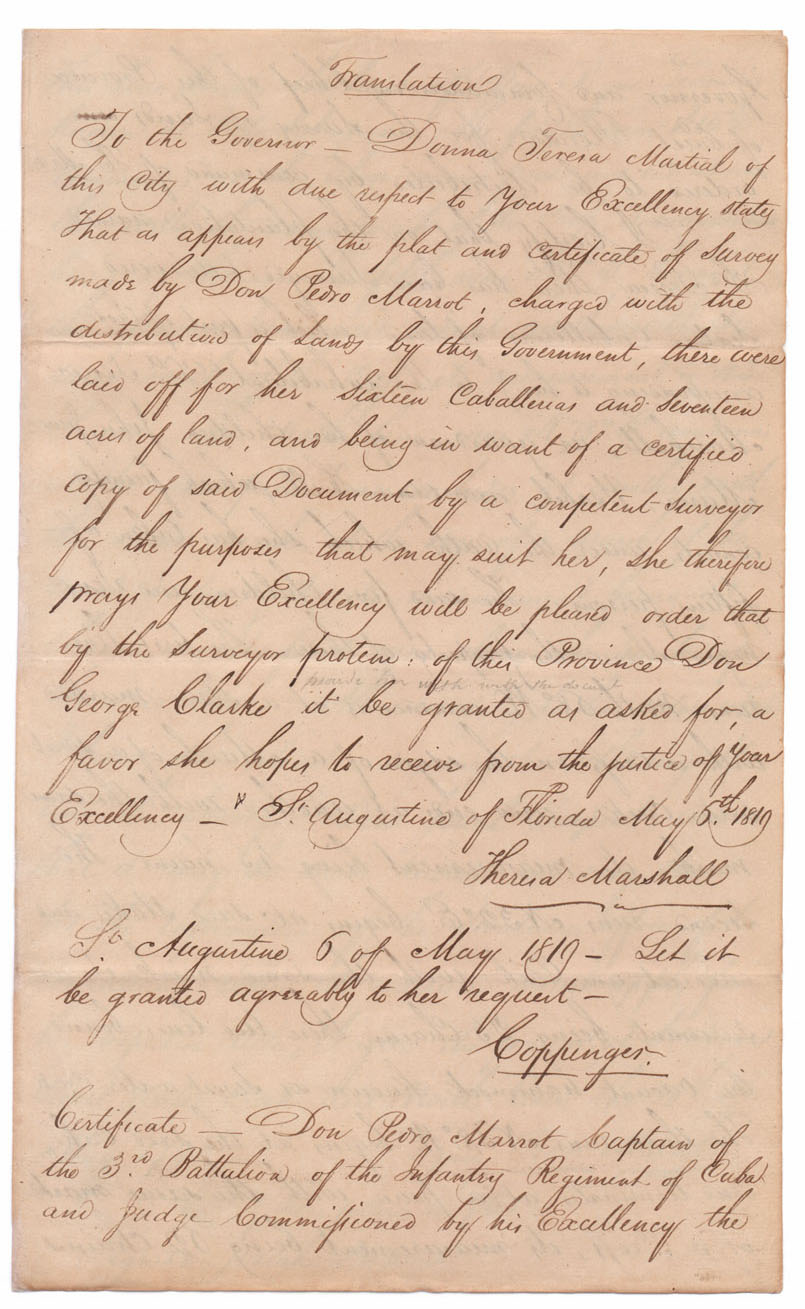 Translation
To the Governor — Donna Teresa Martial of
this City with due respect to Your Excellency states
That as appears by the plat and certificate of Survey
made by Don Pedro Marrot, charged with the
distribution of Lands by this Government, there were
laid off for her Sixteen Caballerias and Seventeen
acres of land, and being in want of a certified
copy of said Document by a competent Surveyor
for the purposes that may suit her, she therefore
prays Your Excellency will be pleased order that
by the Surveyor protem: of this Province Don
George Clarke it be granted as asked for, a
favor she hopes to receive from the justice of Your
Excellency — St. Augustine of Florida May 6.th 1819
Theresa Marshall
St. Augustine 6 of May 1819 — Let it
be granted agreeably to her request —
Coppenger.
Certificate — Don Pedro Marrot Captain of
the 3.rd Battalion of the Infantry Regiment of Cuba
and Judge Commissioned by his Excellency the